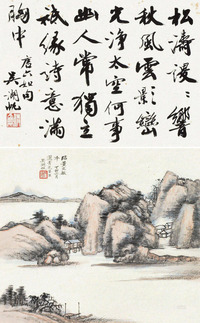 松濤漫漫響
秋風雲影巒
光淨太空何事
幽人常獨立
秖緣詩意滿
胸中
唐六如句
吳湖帆